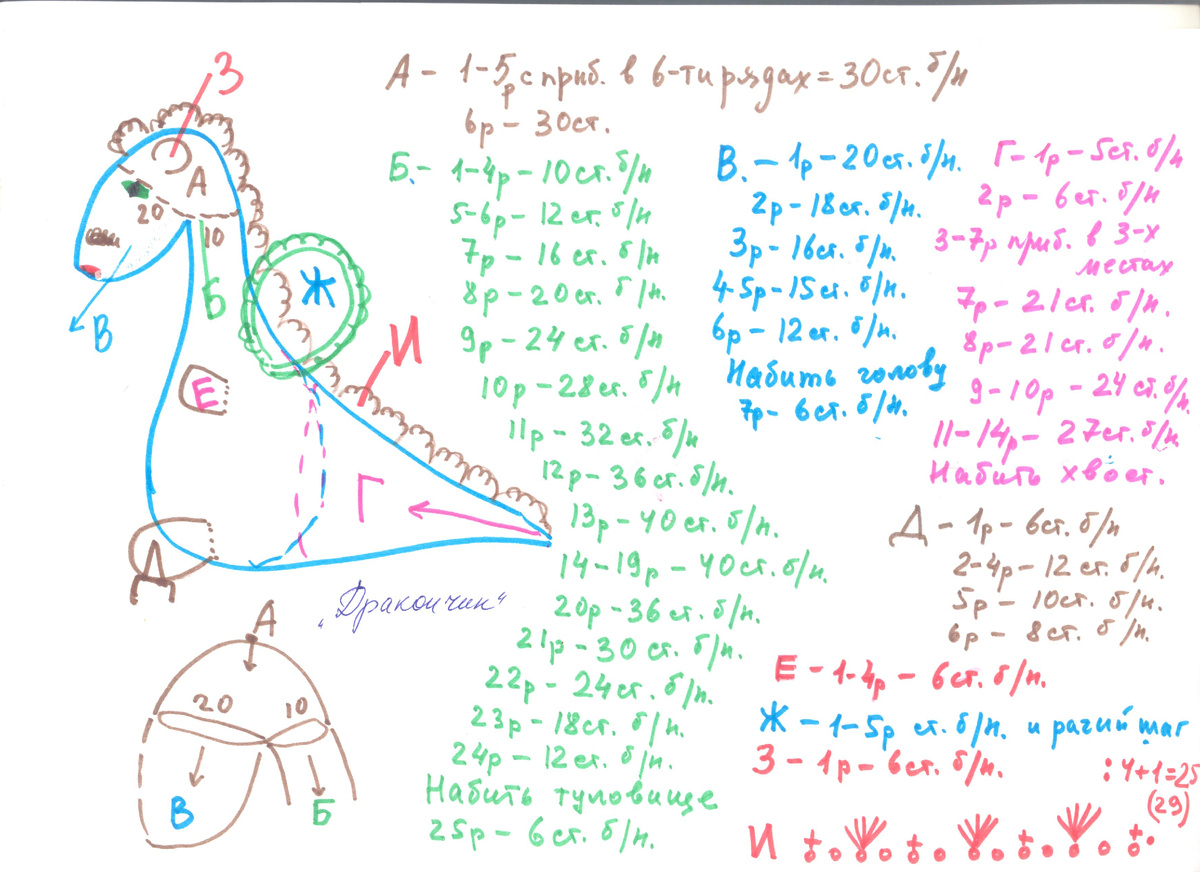 З
А - 1-5р с приб. в 6-ти рядах = 30 ст. б/н
6р - 30ст.
Б. - 1-4р - 10 ст. б/н
5-6р - 12 ст. б/н
7р - 16 ст. б/н
8р - 20ст. б/н.
9р - 24 ст. б/н
10р - 28ст. б/н
11р - 32ст. б/н
12р - 36ст. б/н.
13р - 40ст. б/н.
14-19р - 40ст. б/н.
20р - 36ст. б/н.
21р - 30ст. б/н.
22р - 24ст. б/н.
23р - 18ст. б/н.
24р - 12ст. б/н.
Набить туловище
25р - 6ст. б/н.
В. - 1р - 20ст. б/н.
2р - 18ст. б/н.
3р - 16ст. б/н.
4-5р - 15ст. б/н.
6р - 12ст. б/н.
Набить голову
7р - 6ст. б/н.
Г - 1р - 5ст. б/н
2р - 6ст. б/н
3-7р приб. в 3-х
местах
7р - 21ст. б/н.
8р - 21ст. б/н.
9-10р - 24ст. б/н.
11-14р - 27ст. б/н
Набить хвост.
Д - 1р - 6ст. б/н
2-4р - 12 ст. б/н.
5р - 10ст. б/н.
6р - 8ст. б/н.
Е - 1-4р - 6ст. б/н.
Ж - 1-5р ст. б/н. и рачий шаг
З - 1р - 6ст. б/н.
: 4+1=25
(29)
И
А
20
10
Б
В
Ж
И
Е
Г
Д
„Дракончик“
А
20
10
В
Б